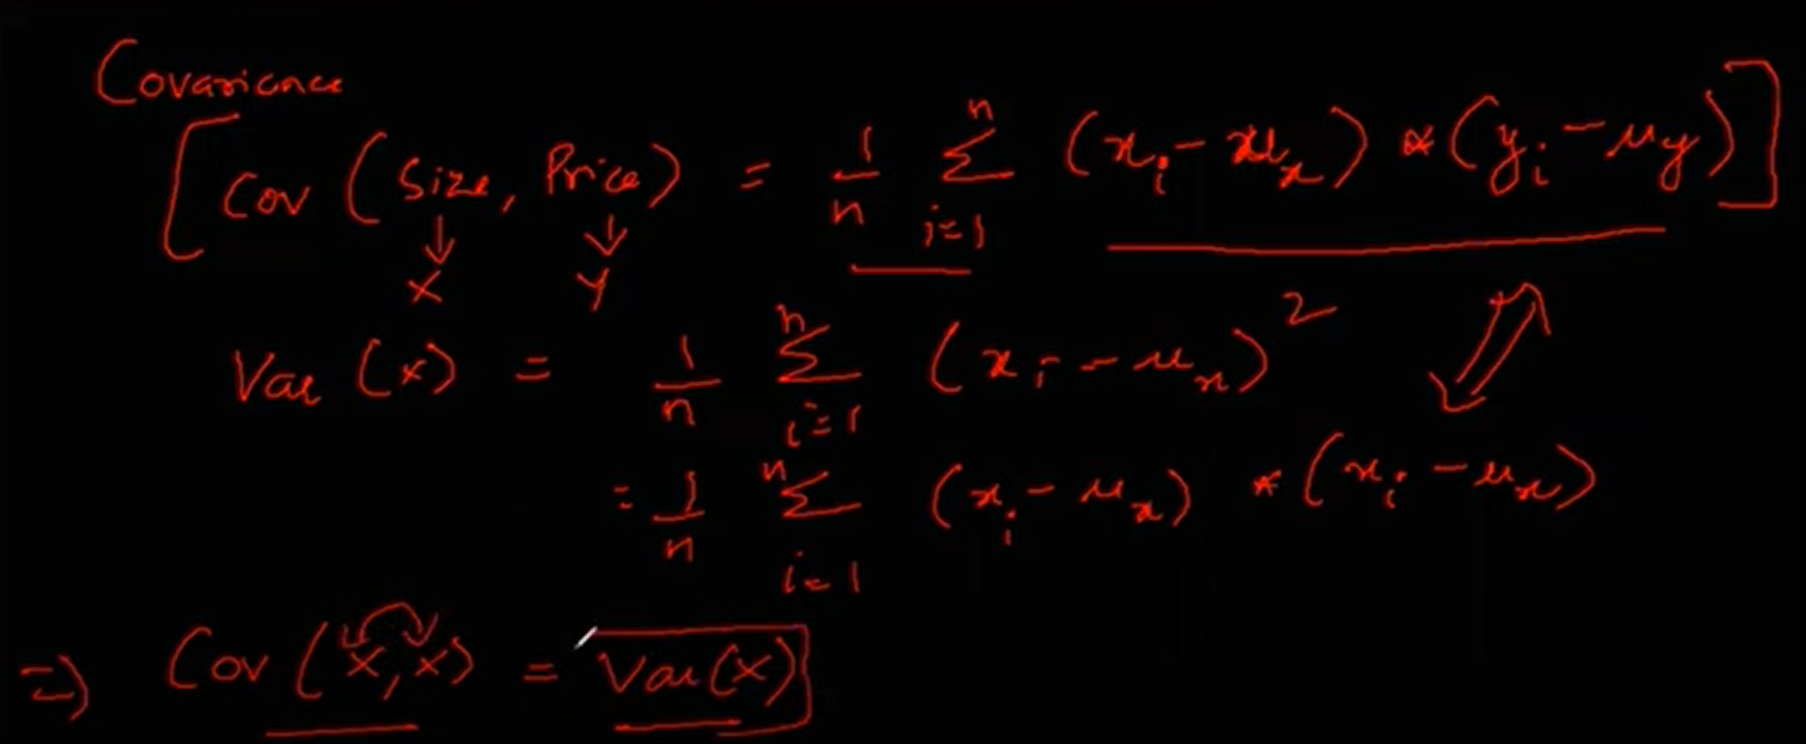 Covariance
[Cov (Size, Price) = 1/n Σ_{i=1}^{n} (x_i - μ_x) * (y_i - μ_y)]
↓ ↓
X Y
Var (x) = 1/n Σ_{i=1}^{n} (x_i - μ_x)^2
= 1/n Σ_{i=1}^{n} (x_i - μ_x) * (x_i - μ_x)
=) Cov (x, x) = Var(x)